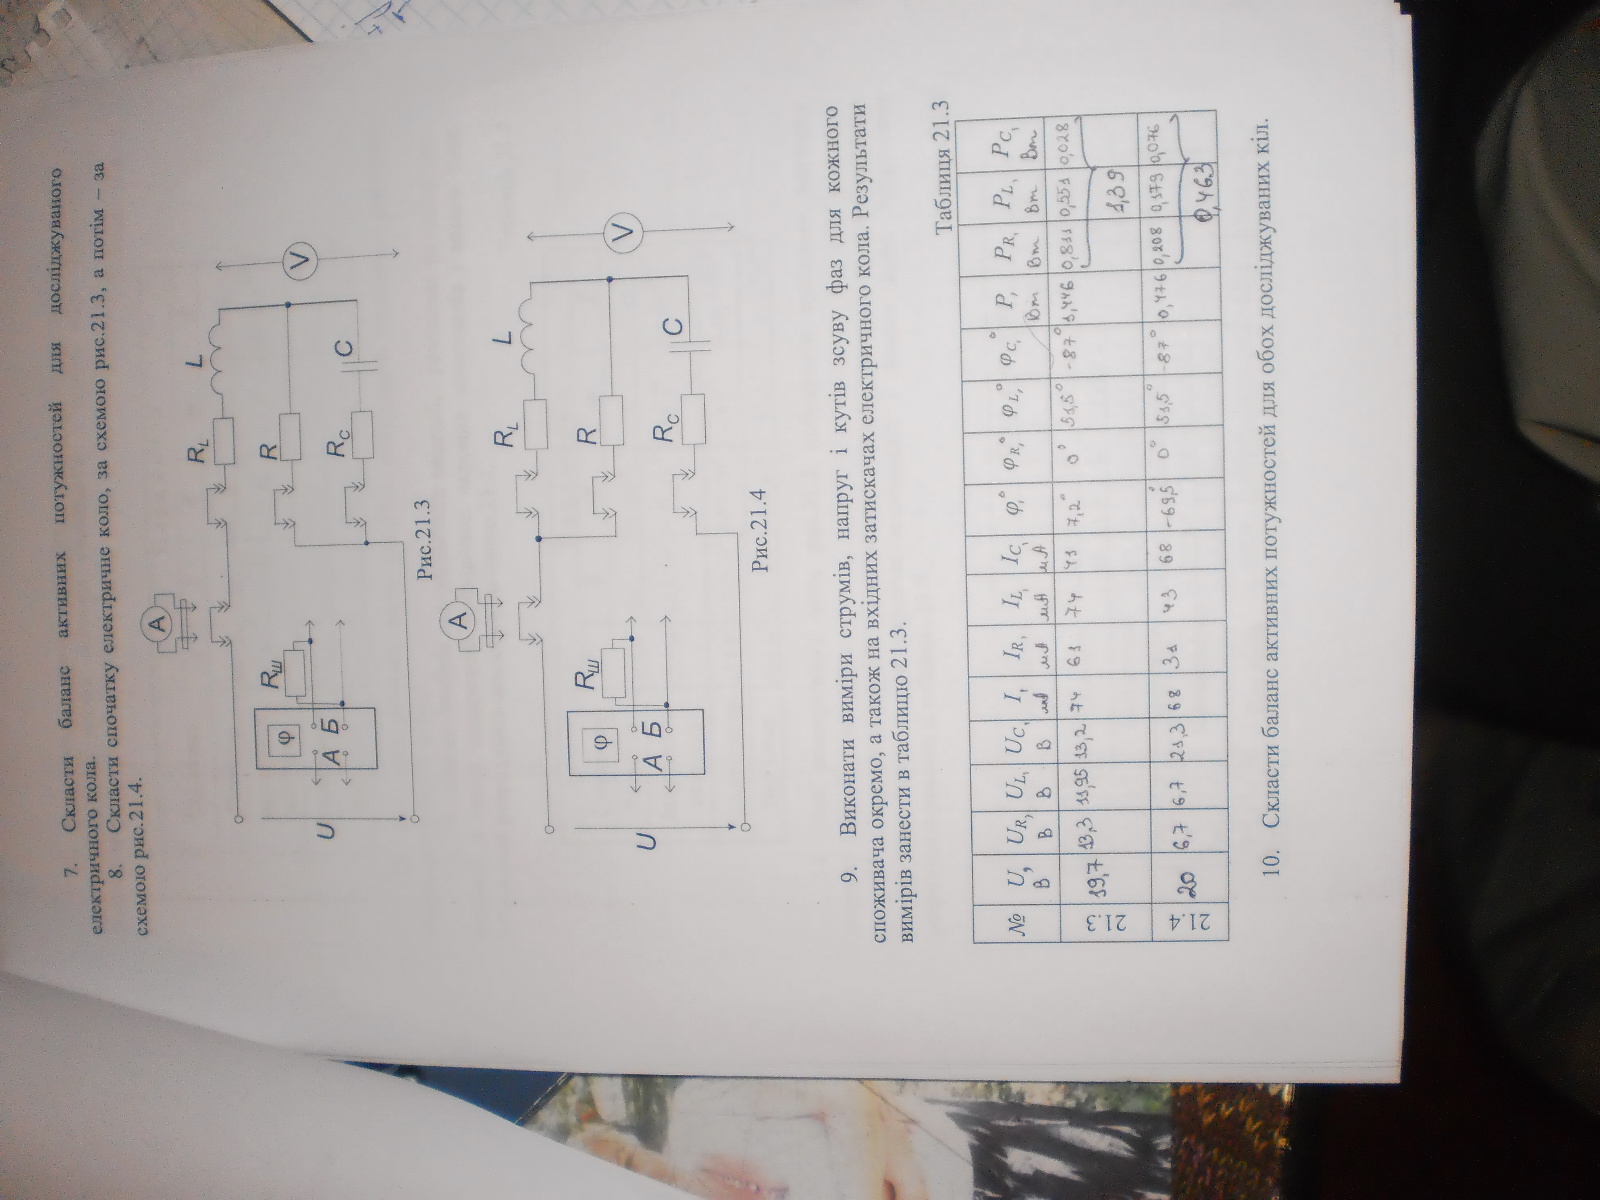 7. Скласти баланс активних потужностей для досліджуваного
електричного кола.
8. Скласти спочатку електричне коло, за схемою рис.21.3, а потім – за
схемою рис.21.4.
A
R_L
L
φ
R_Ш
R
V
U
А
Б
R_C
C
Рис.21.3
A
R_L
L
φ
R_Ш
R
V
U
А
Б
R_C
C
Рис.21.4
9. Виконати виміри струмів, напруг і кутів зсуву фаз для кожного
споживача окремо, а також на вхідних затискачах електричного кола. Результати
вимірів занести в таблицю 21.3.
Таблиця 21.3
№ U, В U_R, В U_L, В U_C, В I, мА I_R, мА I_L, мА I_C, мА φ,° φ_R,° φ_L,° φ_C,° P, Вт P_R, Вт P_L, Вт P_C, Вт
21.3 19,7 13,3 11,95 13,2 74 61 74 41 7,2° 0° 51,5° -87° 1,446 0,811 0,551 0,028
1,39
21.4 20 6,7 6,7 21,3 68 31 43 68 -69,5° 0° 51,5° -87° 0,476 0,208 0,179 0,076
0,463
10. Скласти баланс активних потужностей для обох досліджуваних кіл.